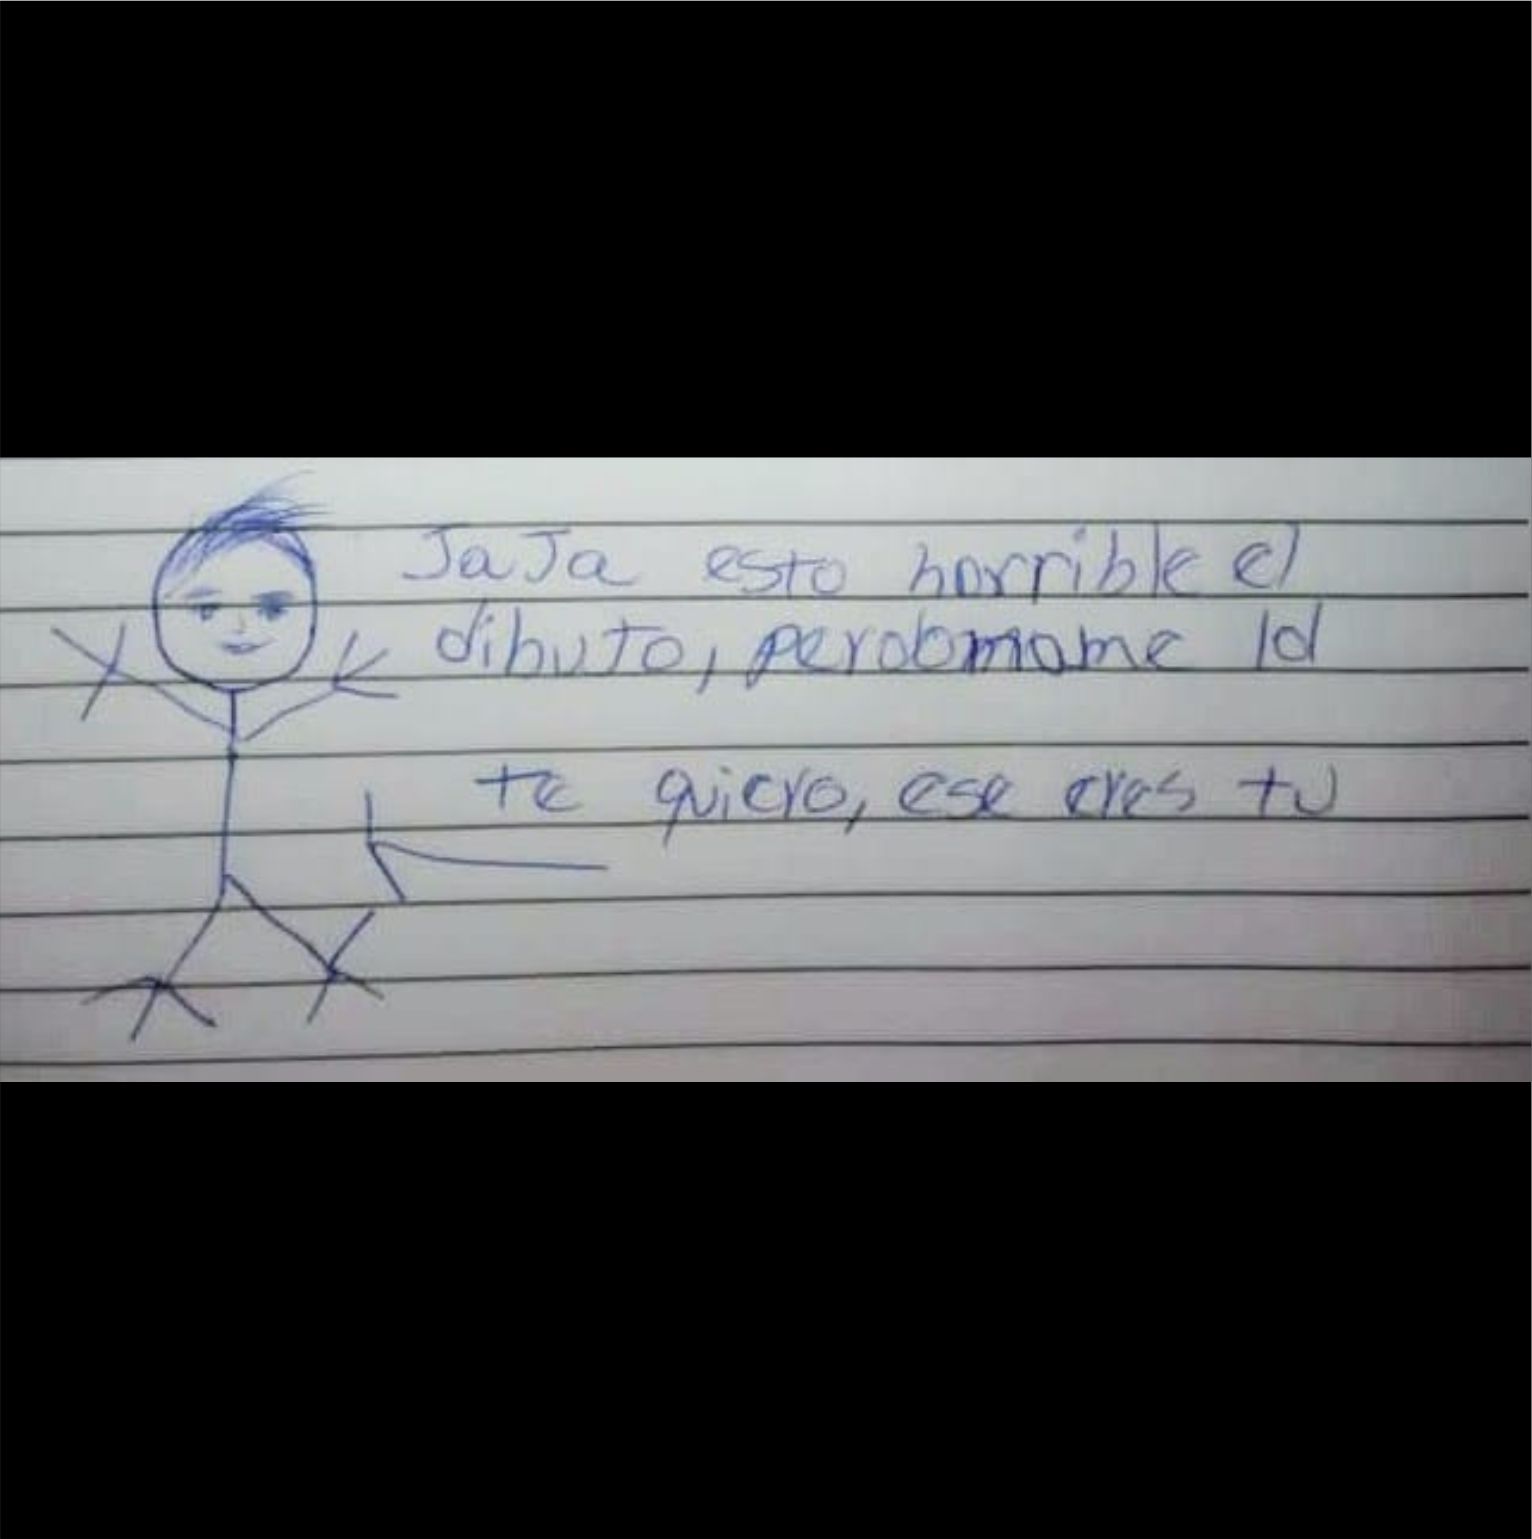 JaJa esto horrible el
dibuJo, perdomame Id
te quiero, ese eres tu